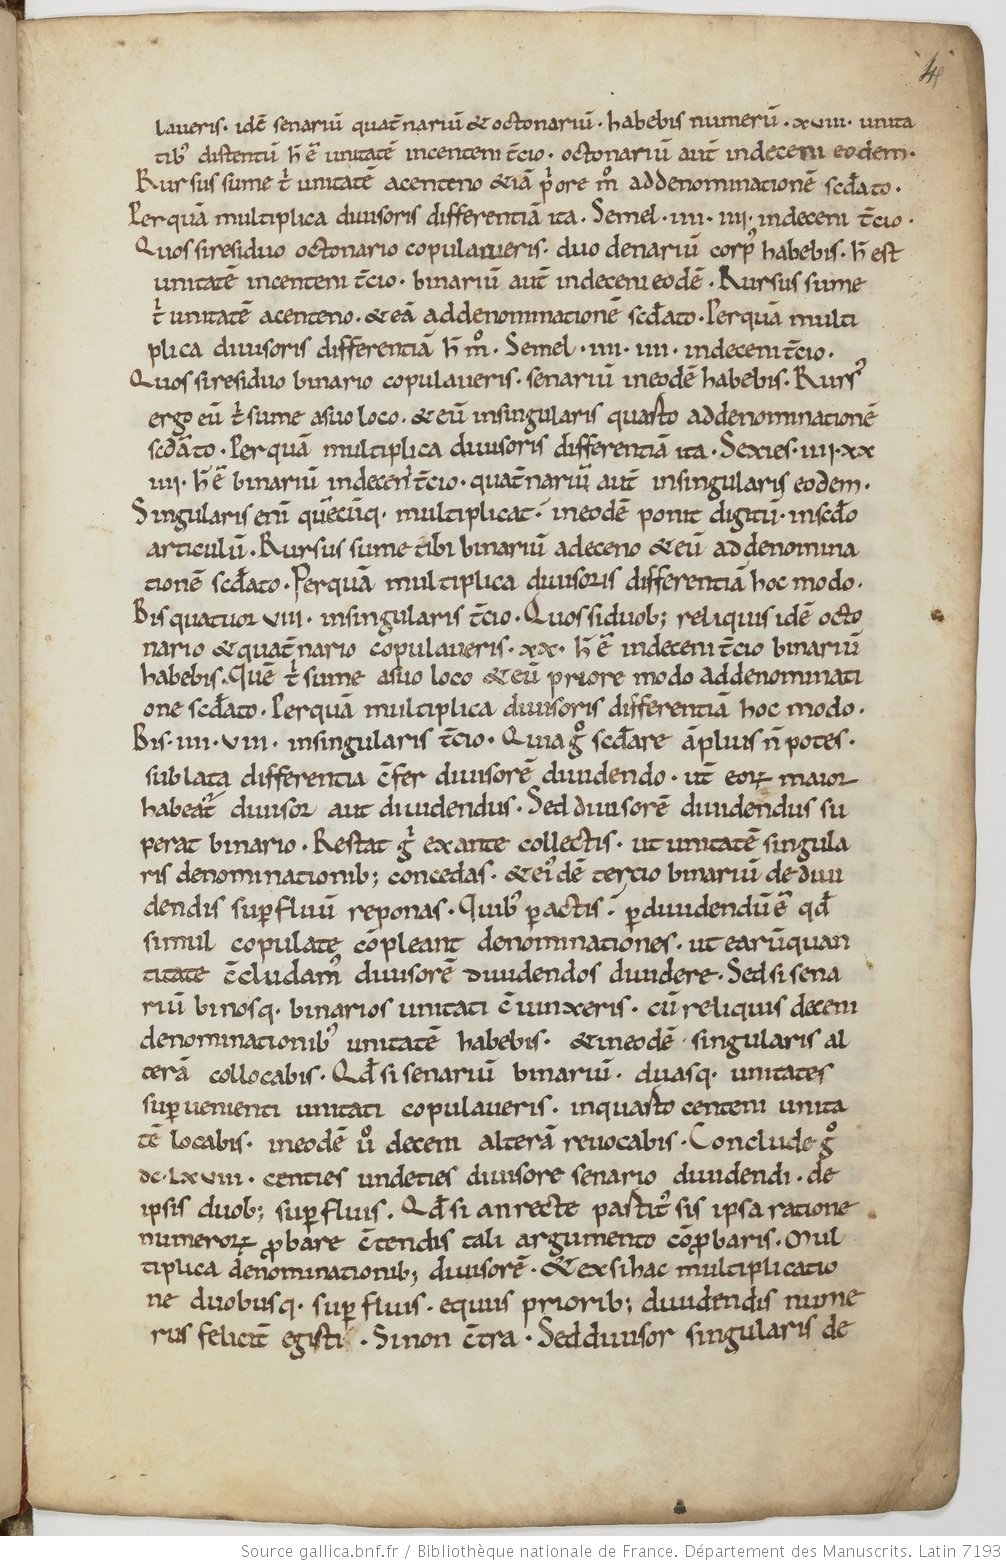 4
laueris· idē senariū quat̄nariū & octonariū· habebis numerū· xviii· unita
tib᾽ distentū h̄ ē unitatē incenteni t̄cio· octonariū aut̄ indeceni eodem·
Rursus sume t̄ unitatē acenteno & iā p̄ore m̊ addenominationē scd̄ato·
Perquā multiplica diuisoris differentiā ita· Semel· iiii· iiii· indeceni t̄cio·
Quos siresiduo octonario copulaueris· duo denariū corp᾽ habebis· h̄ est
unitatē incenteni t̄cio· binariū aut̄ indeceni eodē· Rursus sume
t̄ unitatē acenteno· & eā addenominationē scd̄ato· Perquā multi
plica diuisoris differentiā h̄ m̊· Semel· iiii· iiii· indeceni t̄cio·
Quos siresiduo binario copulaueris· senariū ineodē habebis· Rurs᾽
ergo eū t̄ sume asuo loco· & eū insingularis quarto addenominationē
scd̄ato· Perquā multiplica diuisoris differentiā ita· Sexies· iiii· xx
iiii· h̄ ē binariū indeceni t̄cio· quat̄nariū aut̄ insingularis eodem·
Singularis enī quēcūq· multiplicat· ineodē ponit digitū· inscd̄o
articulū· Rursus sume tibi binariū adeceno & eū addenomina
tionē scd̄ato· Perquā multiplica diuisoris differentiā hoc modo·
Bis quatuor viii· insingularis t̄cio· Quos siduob; reliquis idē octo
nario & quat̄nario copulaueris· xx· h̄ ē indeceni t̄cio binariū
habebis· Quē t̄ sume asuo loco & eū priore modo addenominati
one scd̄ato· Perquā multiplica diuisoris differentiā hoc modo·
Bis· iiii· viii· insingularis t̄cio· Quia g̊ scd̄are āplius n̄ potes·
sublata differentia c̄fer diuisorē diuidendo· ut̄ eoꝝ maior
habeat᾽ diuisor aut diuidendus· Sed diuisorē diuidendus su
perat binario· Restat g̊ exante collectis· ut unitatē singula
ris denominationib; concedas· & ei᾽dē tercio binariū de diui
dendis suꝑfluū reponas· Quib᾽ ꝑactis· ꝑdiuidendū ē qd̄
simul copulate cōpleant denominationes· ut earū quan
titate c̄cludam᾽ diuisorē diuidendos diuidere· Sed si sena
riū binosq· binarios unitati c̄iunxeris· cū reliquis deceni
denominationib᾽ unitatē habebis· & ineodē singularis al
terā collocabis· Qd̄ si senariū binariū· duasq· unitates
suꝑuenienti unitati copulaueris· inquarto centeni unita
tē locabis· ineodē ů deceni alterā reuocabis· Conclude g̊
dc·lxviii· centies undeties diuisore senario diuidendi· de
ipsis duob; suꝑfluis· Qd̄ si an recte partit᾽ sis ipsa ratione
numeroꝝ ꝓbare c̄tendis tali argumento cōꝓbaris· Mul
tiplica denominationib; diuisorē· & exsi hac multiplicatio
ne duobusq· suꝑfluis· equus priorib; diuidendis nume
rus felicit̄ egisti· Sinon c̄tra· Sed diuisor singularis de
Source gallica.bnf.fr / Bibliothèque nationale de France. Département des Manuscrits. Latin 7193